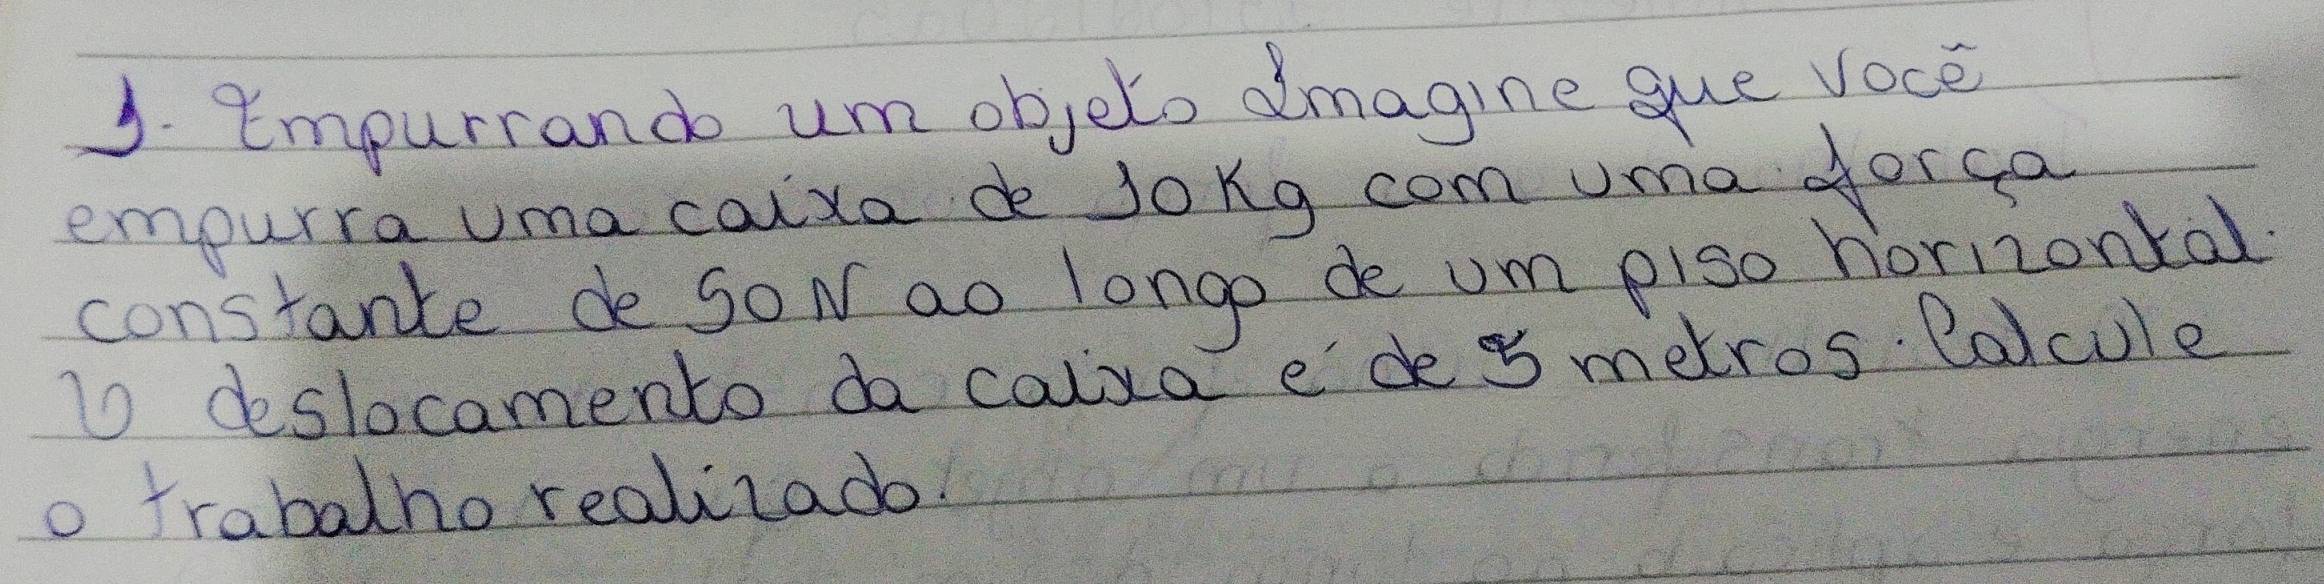 1. Empurrando um objeto Imagine que você
empurra uma caixa de 10Kg com uma força
constante de 50N ao longo de um piso horizontal.
O deslocamento da caixa é de 5 metros. Calcule
o trabalho realizado.